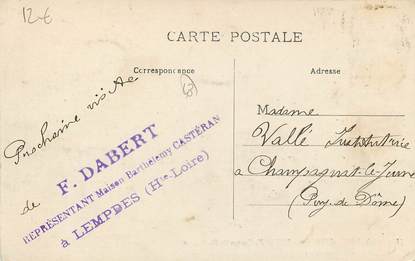 12€
CARTE POSTALE
Correspondance
Adresse
63
Prochaine visite
de
F. DABERT
REPRÉSENTANT Maison Barthélemy CASTÉRAN
à LEMPDES (Hte-Loire)
Madame
Vallé Institutrice
à Champagnat-le-Jeune
(Puy-de-Dôme)